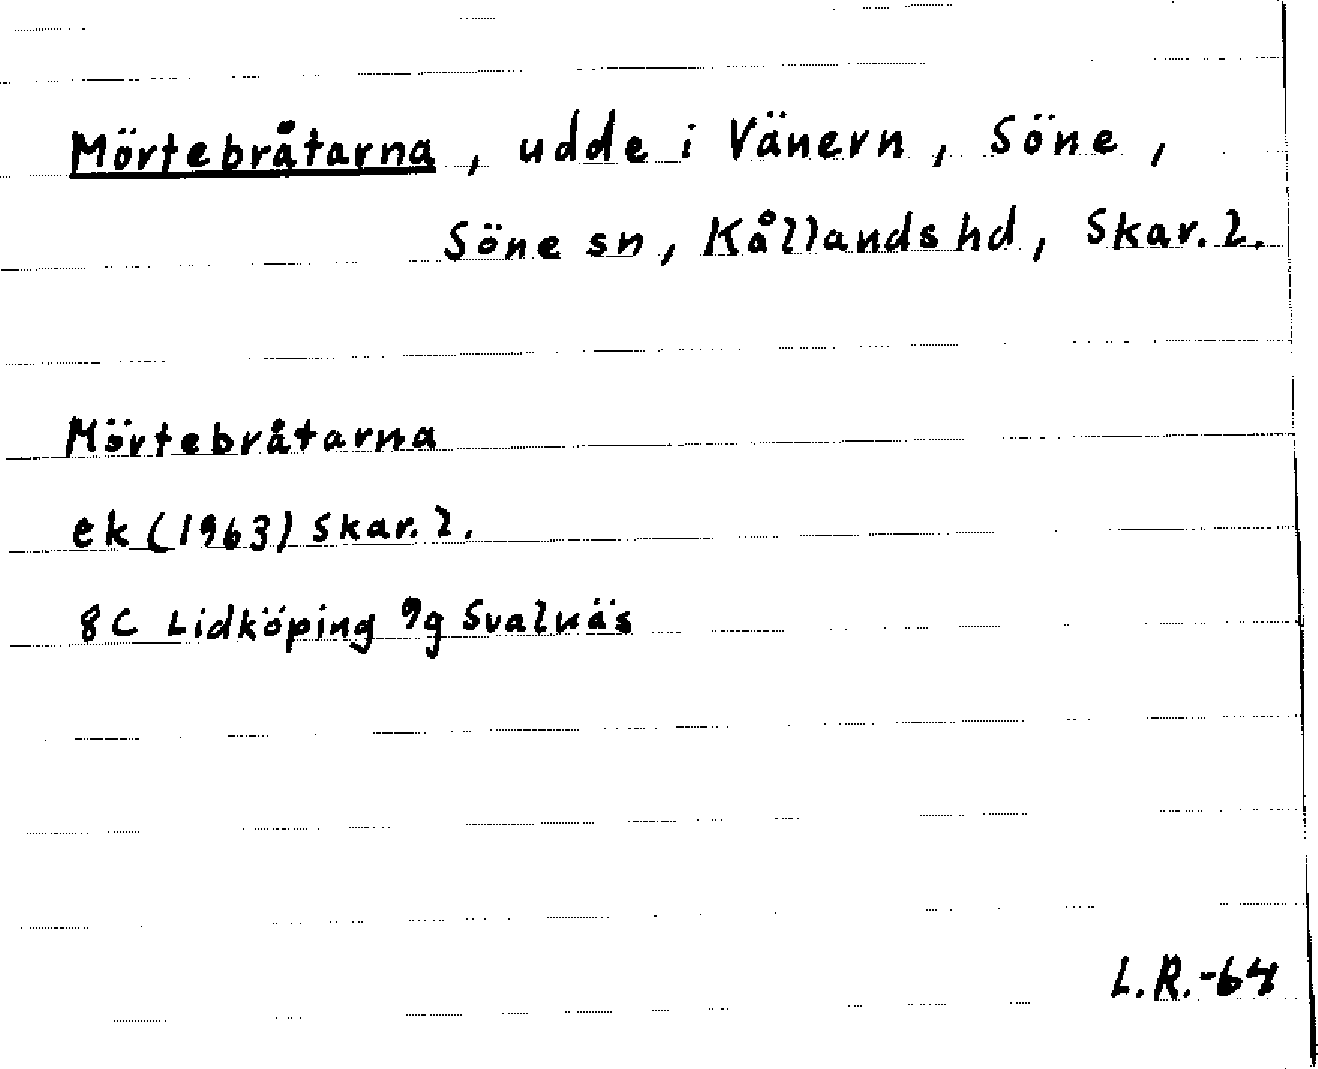 Mörtebråtarna, udde i Vänern, Söne,
Söne sn, Kållands hd, Skar. l.
Mörtebråtarna
ek (1963) Skar. l.
8C Lidköping 9g Svalnäs
L.R.-64